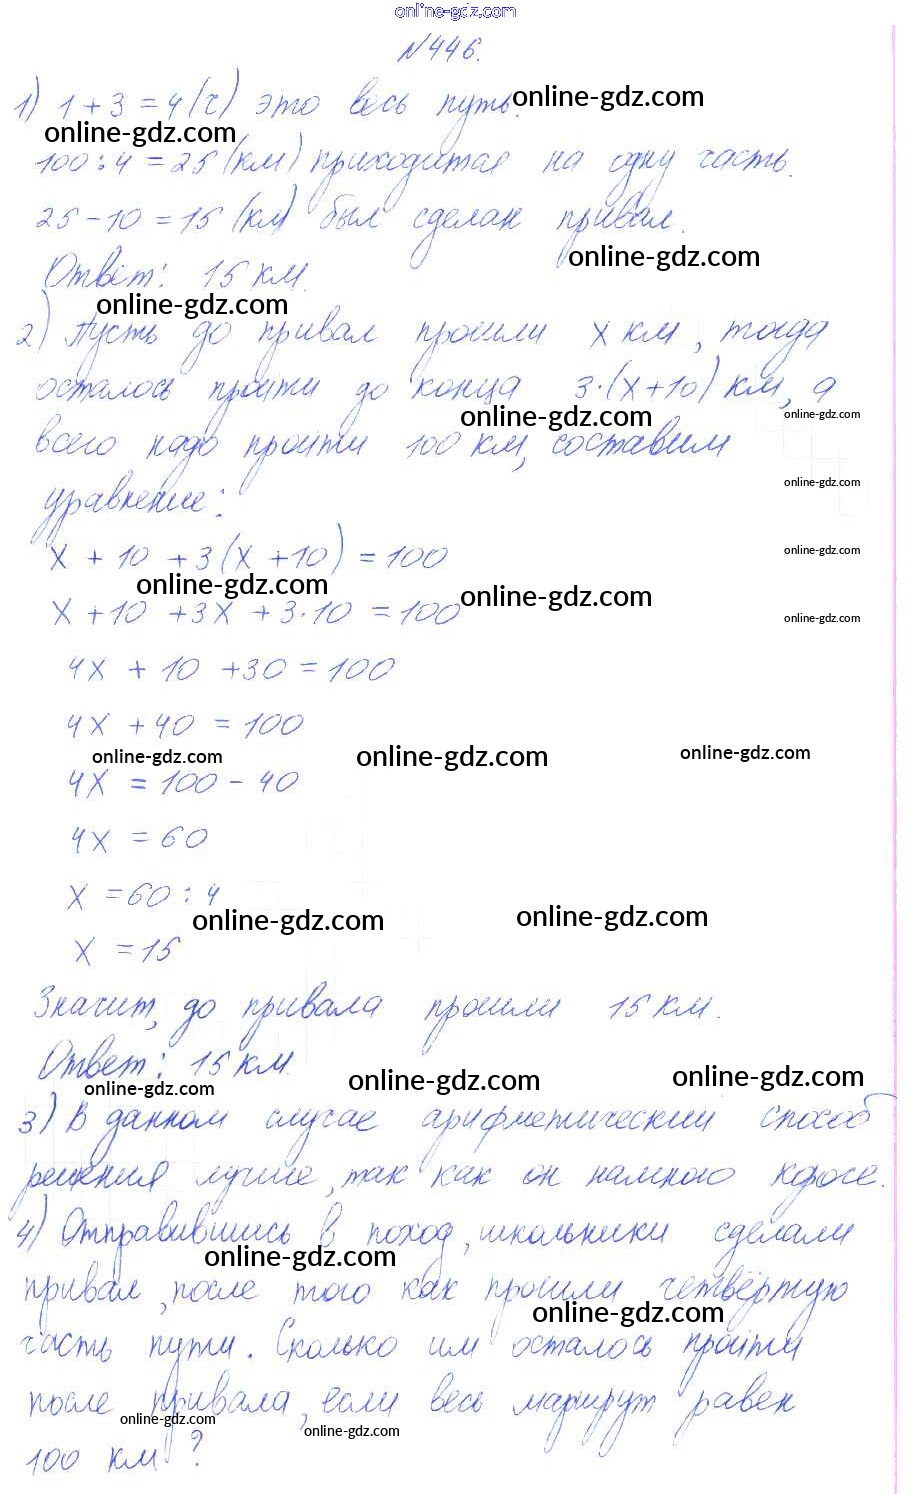 online-gdz.com
№446.
1) 1 + 3 = 4 (ч) это весь путь.
online-gdz.com
online-gdz.com
100 : 4 = 25 (км) приходится на одну часть.
25 - 10 = 15 (км) был сделан привал.
online-gdz.com
Ответ: 15 км.
online-gdz.com
2) Пусть до привал прошли x км, тогда
осталось пройти до конца 3·(x+10) км, а
online-gdz.com
online-gdz.com
всего надо пройти 100 км, составим
online-gdz.com
уравнение:
x + 10 + 3(x + 10) = 100
online-gdz.com
online-gdz.com
online-gdz.com
x + 10 + 3x + 3·10 = 100
online-gdz.com
4x + 10 + 30 = 100
4x + 40 = 100
online-gdz.com
online-gdz.com
online-gdz.com
4x = 100 - 40
4x = 60
x = 60 : 4
online-gdz.com
online-gdz.com
x = 15
Значит, до привала прошли 15 км.
Ответ: 15 км.
online-gdz.com
online-gdz.com
online-gdz.com
3) В данном случае арифметический способ
решения лучше, так как он намного короче.
4) Отправившись в поход, школьники сделали
online-gdz.com
привал, после того как прошли четвёртую
online-gdz.com
часть пути. Сколько им осталось пройти
после привала, если весь маршрут равен
online-gdz.com
online-gdz.com
100 км?